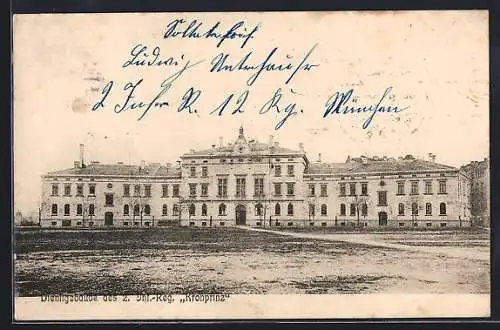 Soldatenbrief
Ludwig Unterhauser
2 Inf R. 12 Kg. München
Dienstgebäude des 2. Inf.-Reg. „Kronprinz"